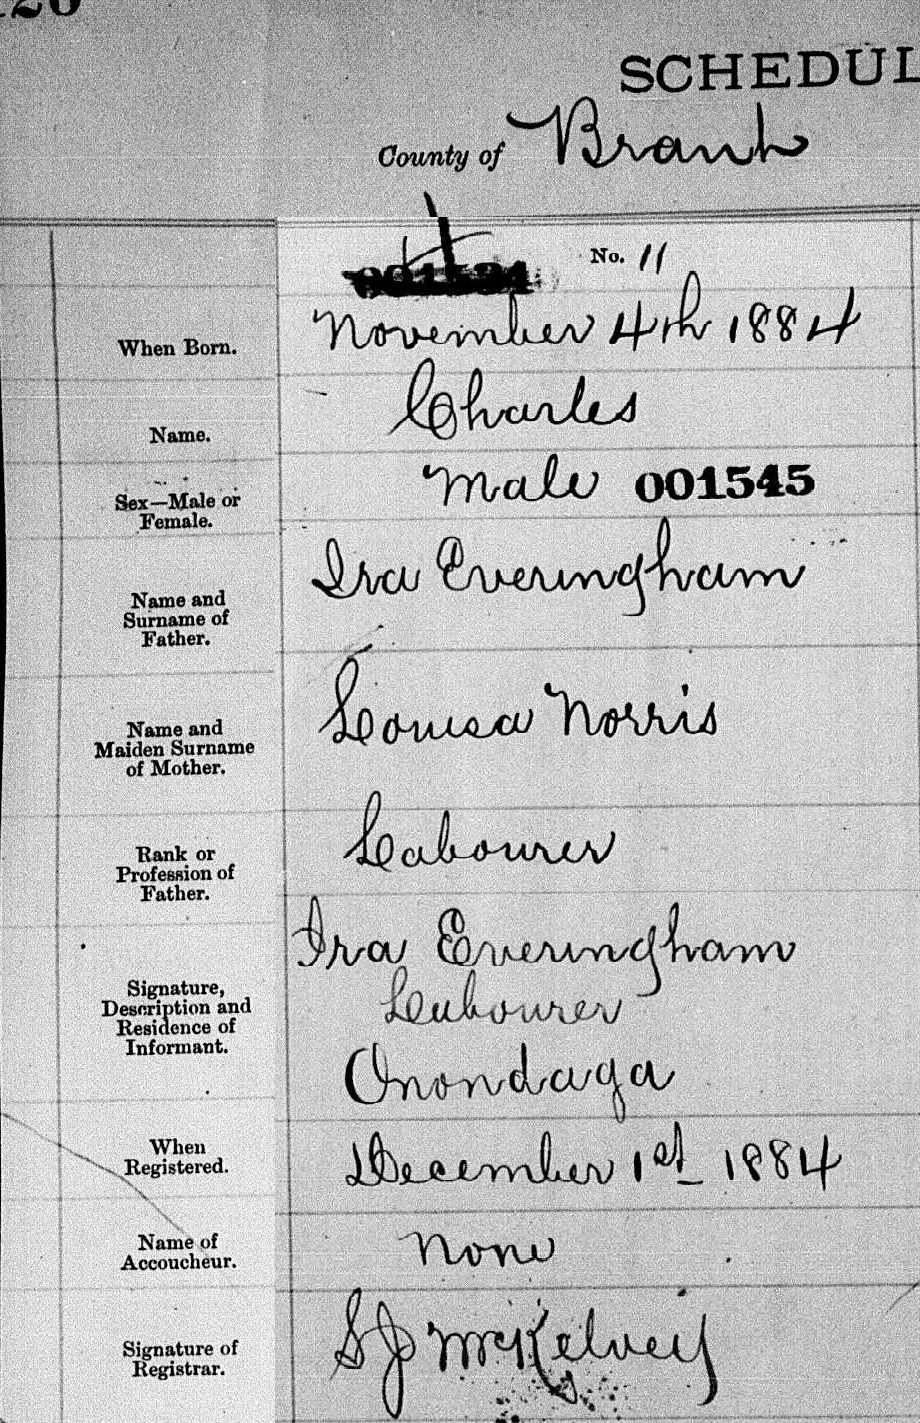 SCHEDUL
County of Brant
No. 11
When Born.
November 4th 1884
Name.
Charles
Sex—Male or
Female.
Male 001545
Name and
Surname of
Father.
Ira Everingham
Name and
Maiden Surname
of Mother.
Louisa Norris
Rank or
Profession of
Father.
Labourer
Signature,
Description and
Residence of
Informant.
Ira Everingham
Labourer
Onondaga
When
Registered.
December 1st 1884
Name of
Accoucheur.
None
Signature of
Registrar.
S J McKelvey